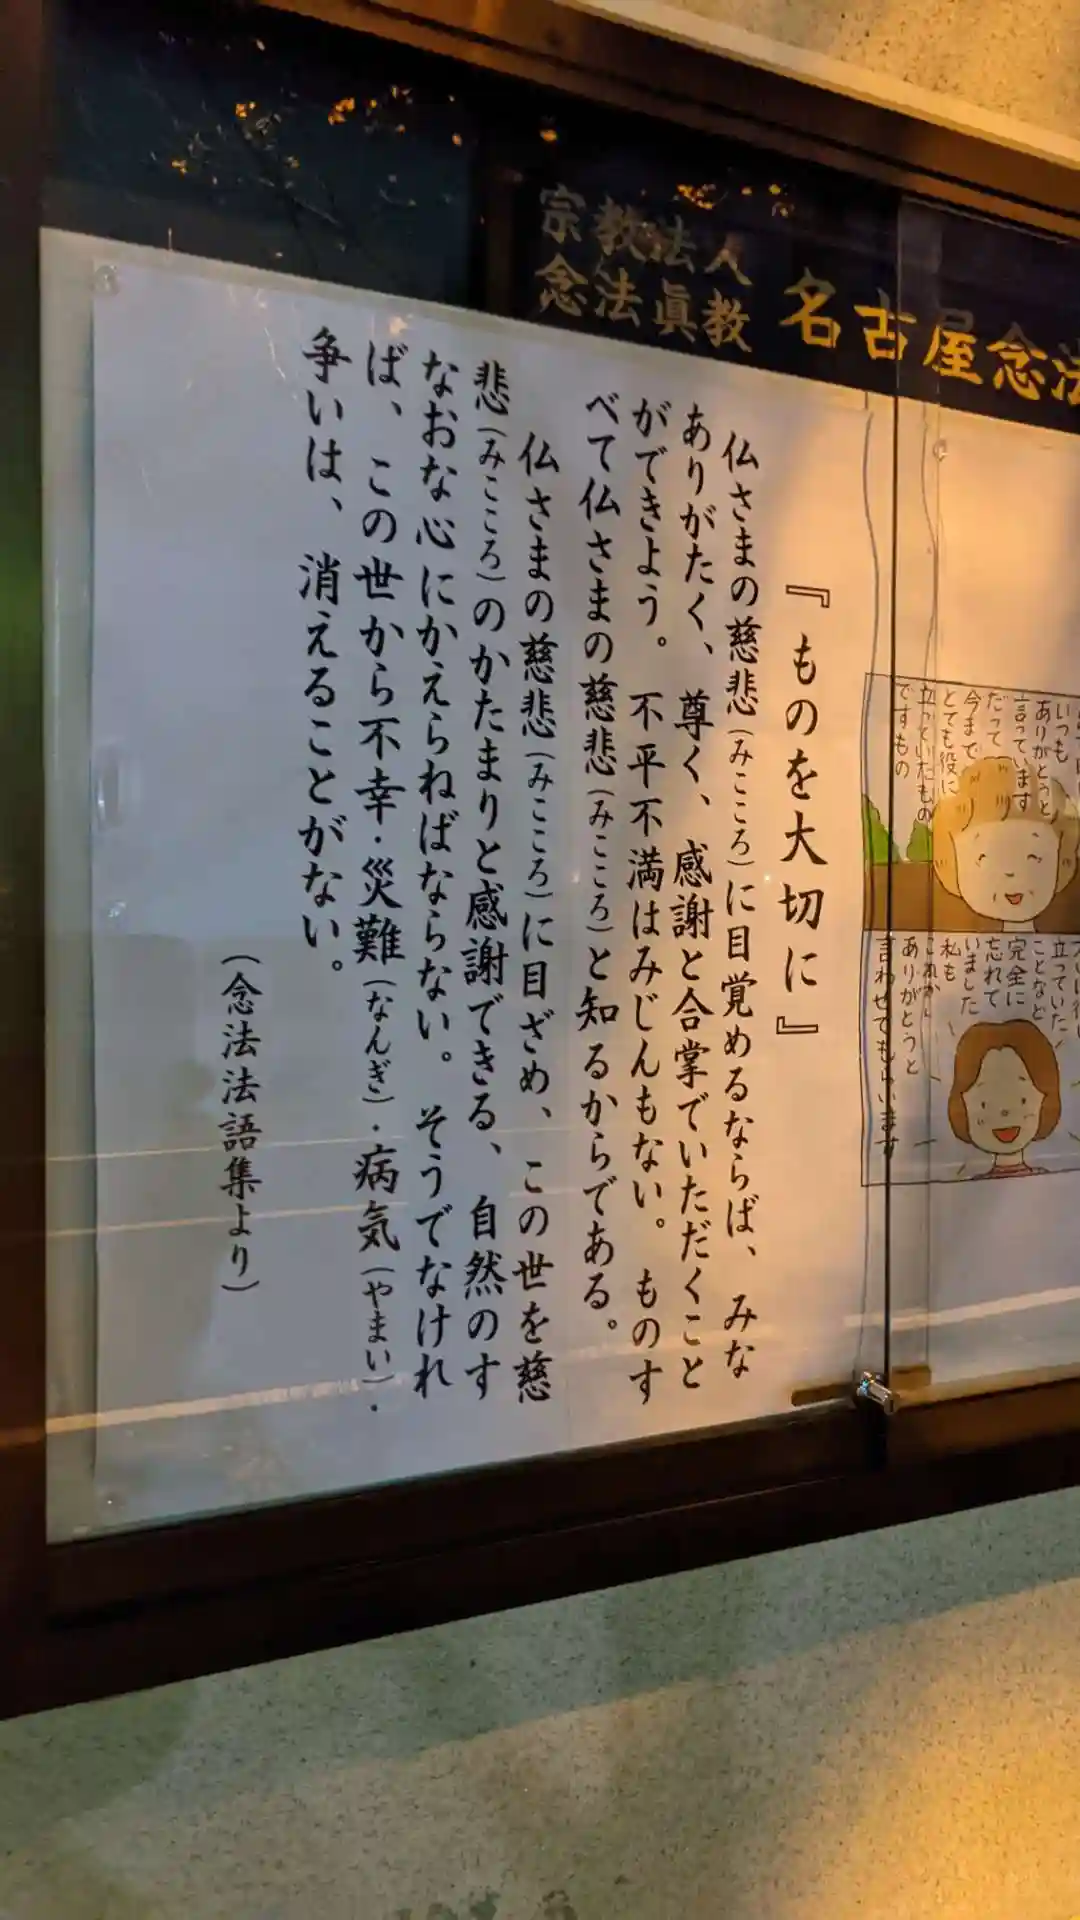 宗教法人
念法眞教
名古屋念法
『ものを大切に』
仏さまの慈悲(みこころ)に目覚めるならば、みな
ありがたく、尊く、感謝と合掌でいただくこと
ができよう。不平不満はみじんもない。ものす
べて仏さまの慈悲(みこころ)と知るからである。
仏さまの慈悲(みこころ)に目ざめ、この世を慈
悲(みこころ)のかたまりと感謝できる、自然のす
なおな心にかえらねばならない。そうでなけれ
ば、この世から不幸・災難(なんぎ)・病気(やまい)・
争いは、消えることがない。
(念法法語集より)
いつも
ありがとうと
言っています
だって
今まで
とても役に
立っていたもの
ですもの
立っていた
ことなど
完全に
忘れて
いました
私も
これから
ありがとうと
言わせてもらいます